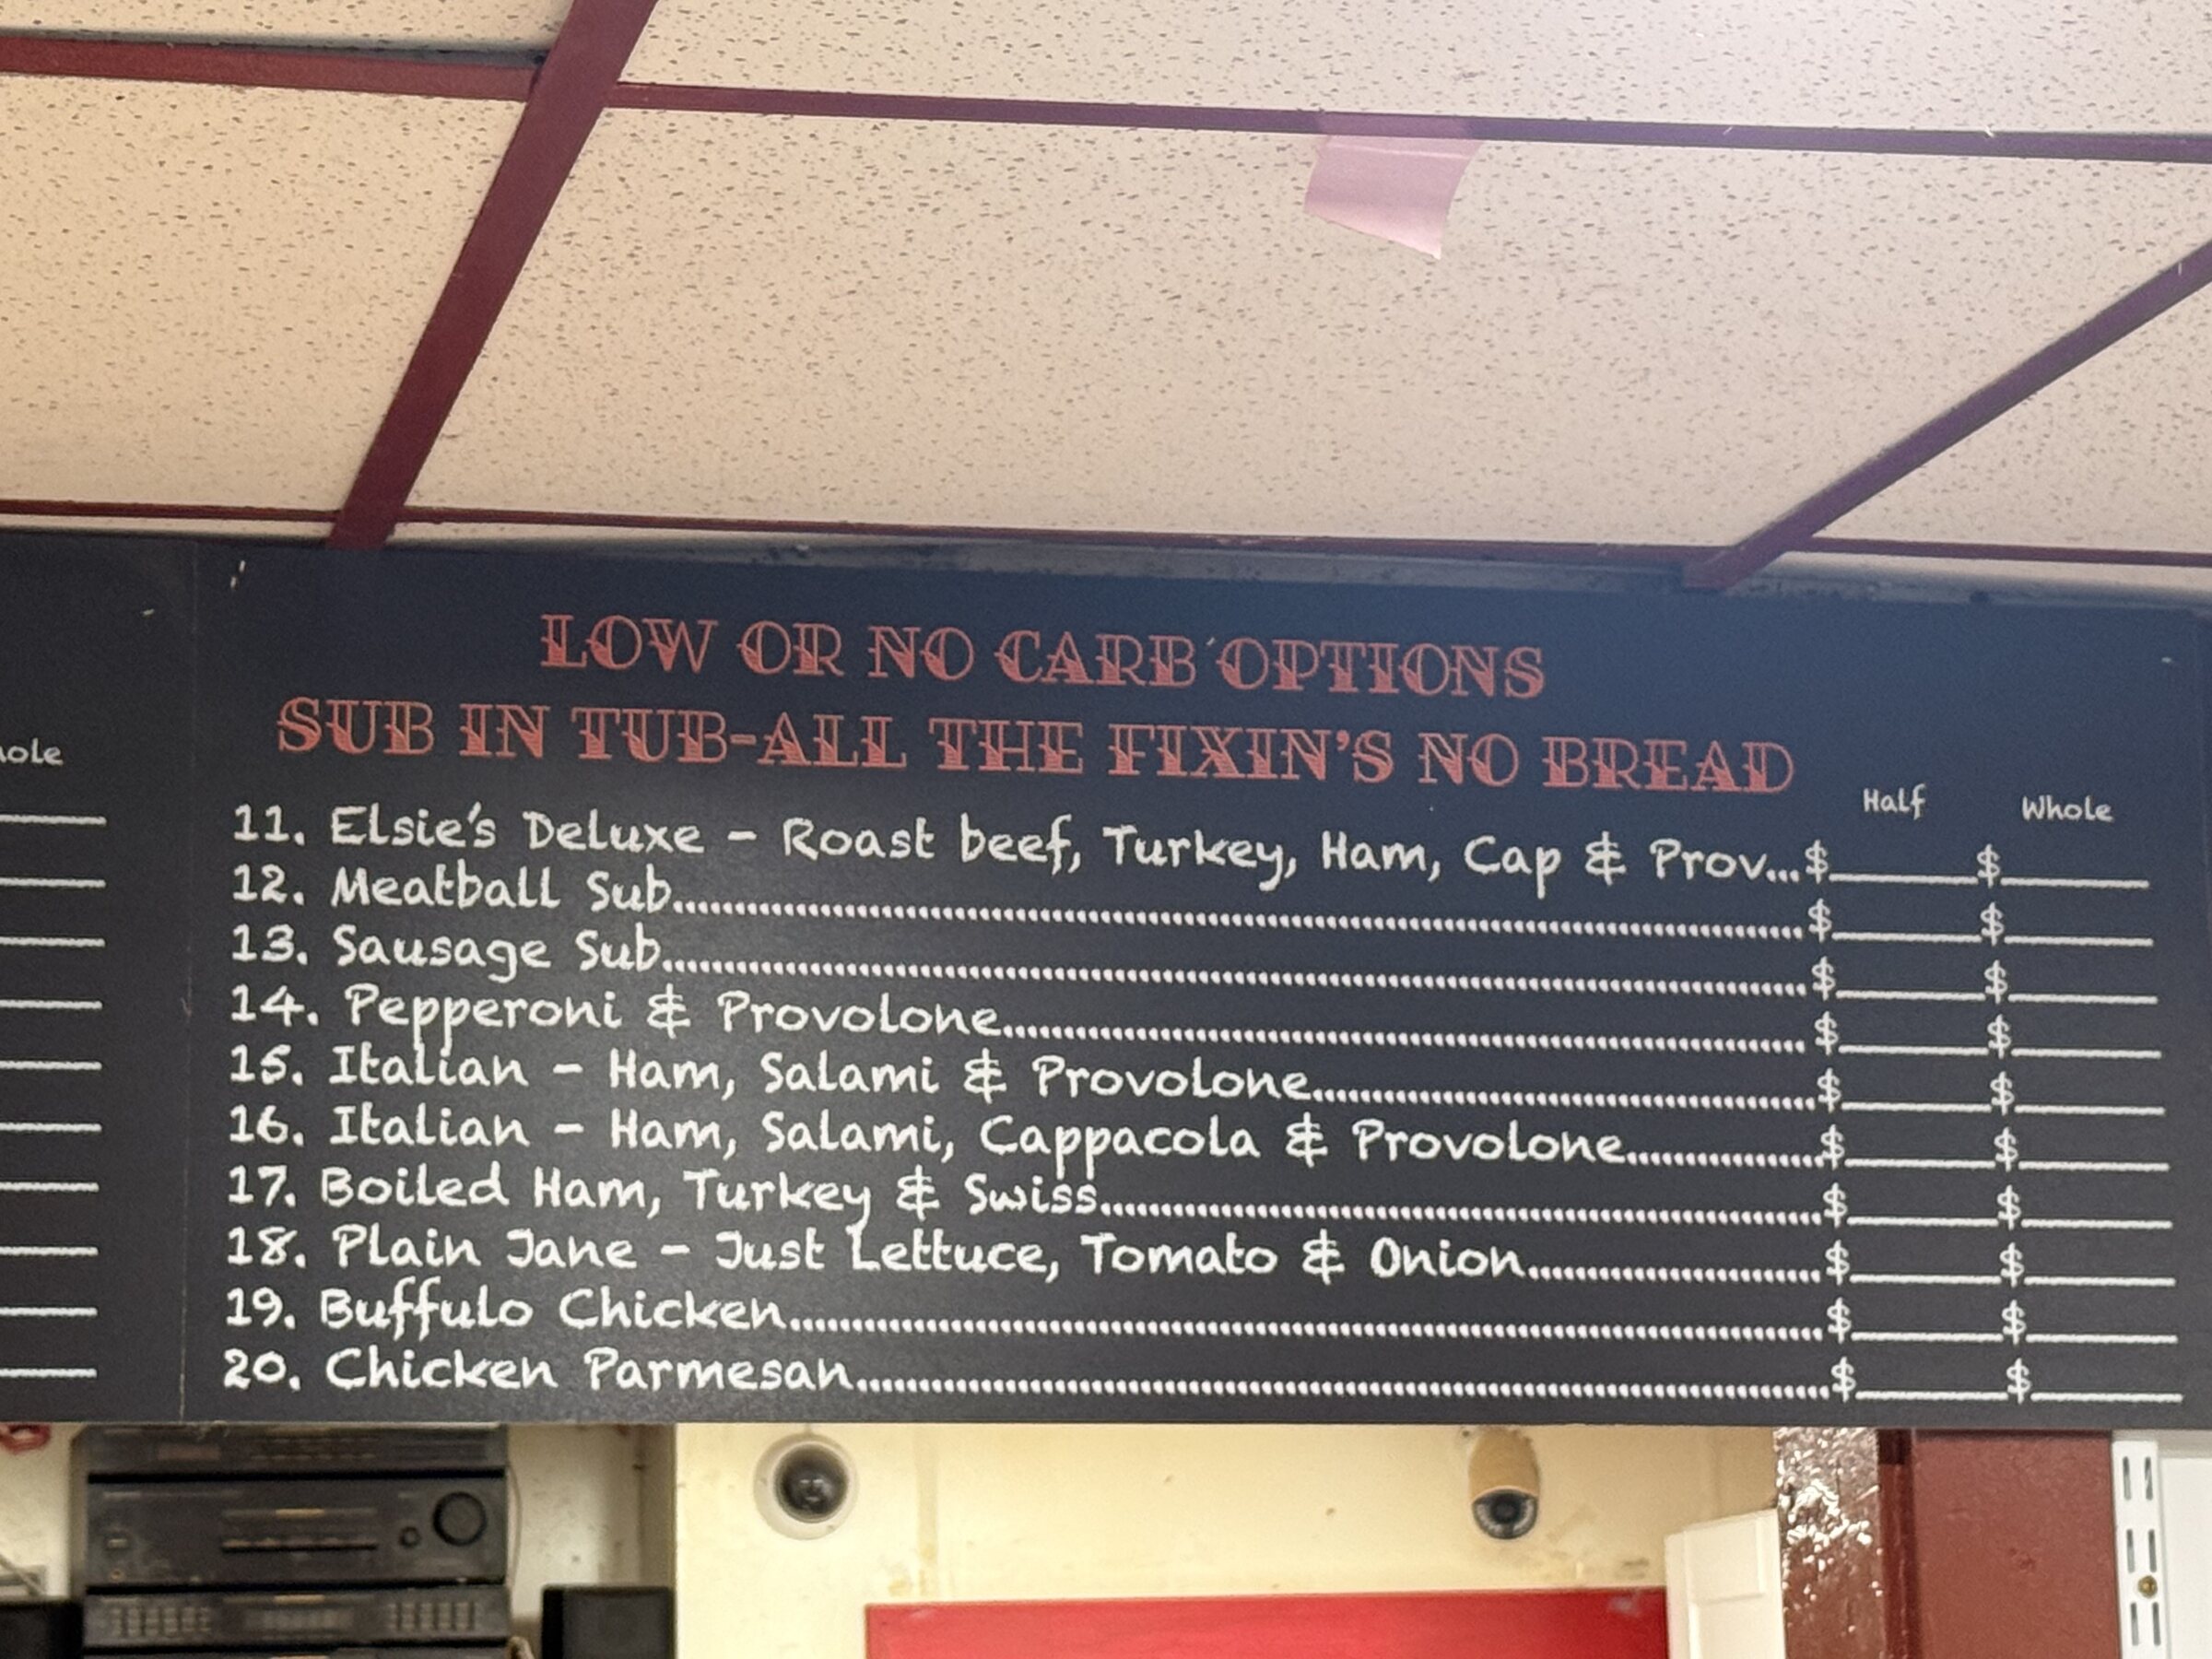 LOW OR NO CARB OPTIONS
SUB IN TUB-ALL THE FIXIN'S NO BREAD
Half Whole
11. Elsie's Deluxe - Roast beef, Turkey, Ham, Cap & Prov...$______$______
12. Meatball Sub..........$______$______
13. Sausage Sub..........$______$______
14. Pepperoni & Provolone..........$______$______
15. Italian - Ham, Salami & Provolone..........$______$______
16. Italian - Ham, Salami, Cappacola & Provolone..........$______$______
17. Boiled Ham, Turkey & Swiss..........$______$______
18. Plain Jane - Just Lettuce, Tomato & Onion..........$______$______
19. Buffulo Chicken..........$______$______
20. Chicken Parmesan..........$______$______